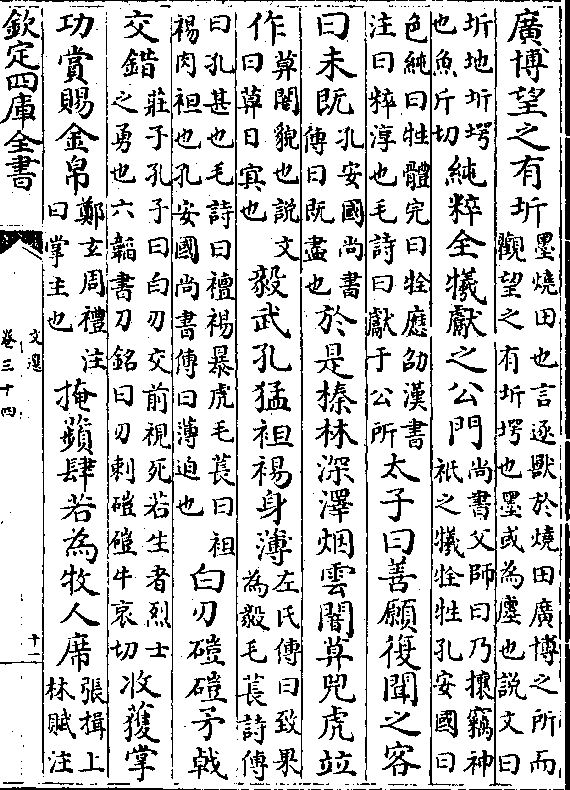 廣博望之有圻墨燒田也言逐獸於燒田廣博之所而觀望之有圻堮也墨或為廛也說文曰
圻地圻堮也魚斤切純粹全犧獻之公門尚書父師曰乃攘竊神祇之犧牷牲孔安國曰
色純曰牲體完曰牷應劭漢書注曰粹淳也毛詩曰獻于公所太子曰善願復聞之客
曰未既孔安國尚書傳曰既盡也於是榛林深澤烟雲闇莫兕虎竝
作莫闇貌也說文曰莫日冥也毅武孔猛袒裼身薄左氏傳曰致果為毅毛萇詩傳
曰孔甚也毛詩曰襢裼暴虎毛萇曰袒裼肉袒也孔安國尚書傳曰薄迫也白刃磑磑矛戟
交錯莊子孔子曰白刃交前視死若生者烈士之勇也六韜書刀銘曰刃刺磑磑牛哀切收獲掌
功賞賜金帛鄭玄周禮注曰掌主也掩蘋肆若為牧人席張揖上林賦注
欽定四庫全書
文選
卷三十四
十一